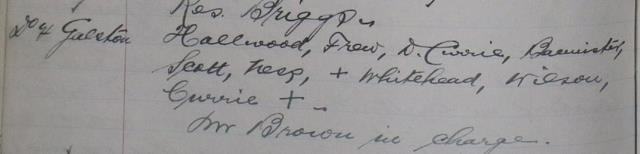 Res. Briggs
Do v Galston Hallwood, Frew, D. Currie, Bannister,
Scott, Ness, + Whitehead, Wilson,
Currie +
Mr Brown in charge.